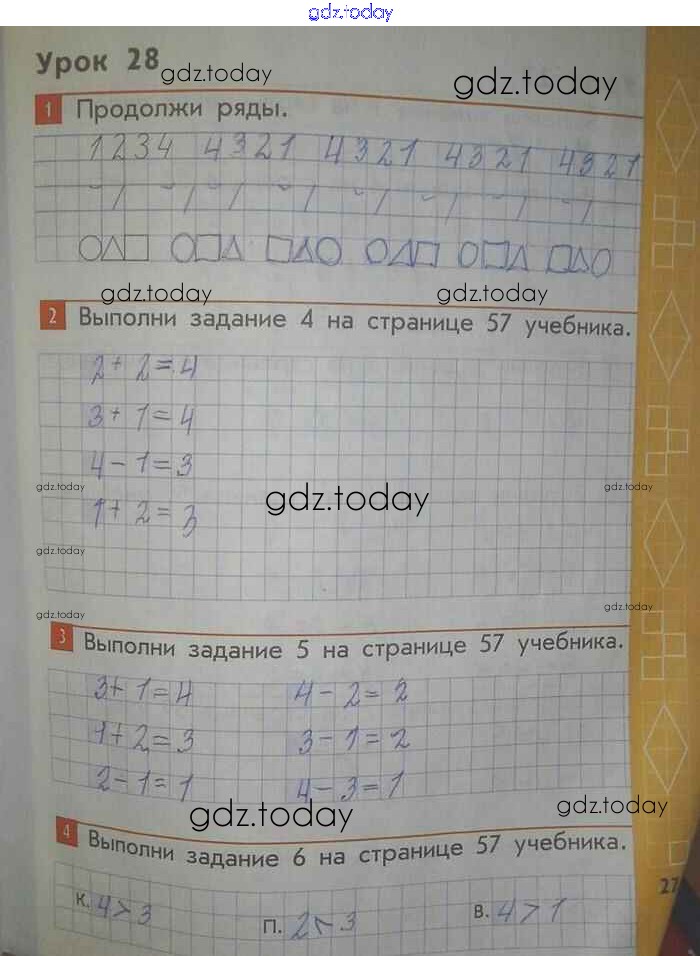 gdz.today
Урок 28 gdz.today gdz.today
1 Продолжи ряды.
1 2 3 4 4 3 2 1 4 3 2 1 4 3 2 1 4 3 2 1
gdz.today gdz.today
2 Выполни задание 4 на странице 57 учебника.
2 + 2 = 4
3 + 1 = 4
4 - 1 = 3
gdz.today gdz.today gdz.today
1 + 2 = 3
gdz.today
gdz.today gdz.today
3 Выполни задание 5 на странице 57 учебника.
3 + 1 = 4 4 - 2 = 2
1 + 2 = 3 3 - 1 = 2
2 - 1 = 1 4 - 3 = 1
gdz.today gdz.today
4 Выполни задание 6 на странице 57 учебника.
27
К. 4 > 3 П. 2 < 3 В. 4 > 1